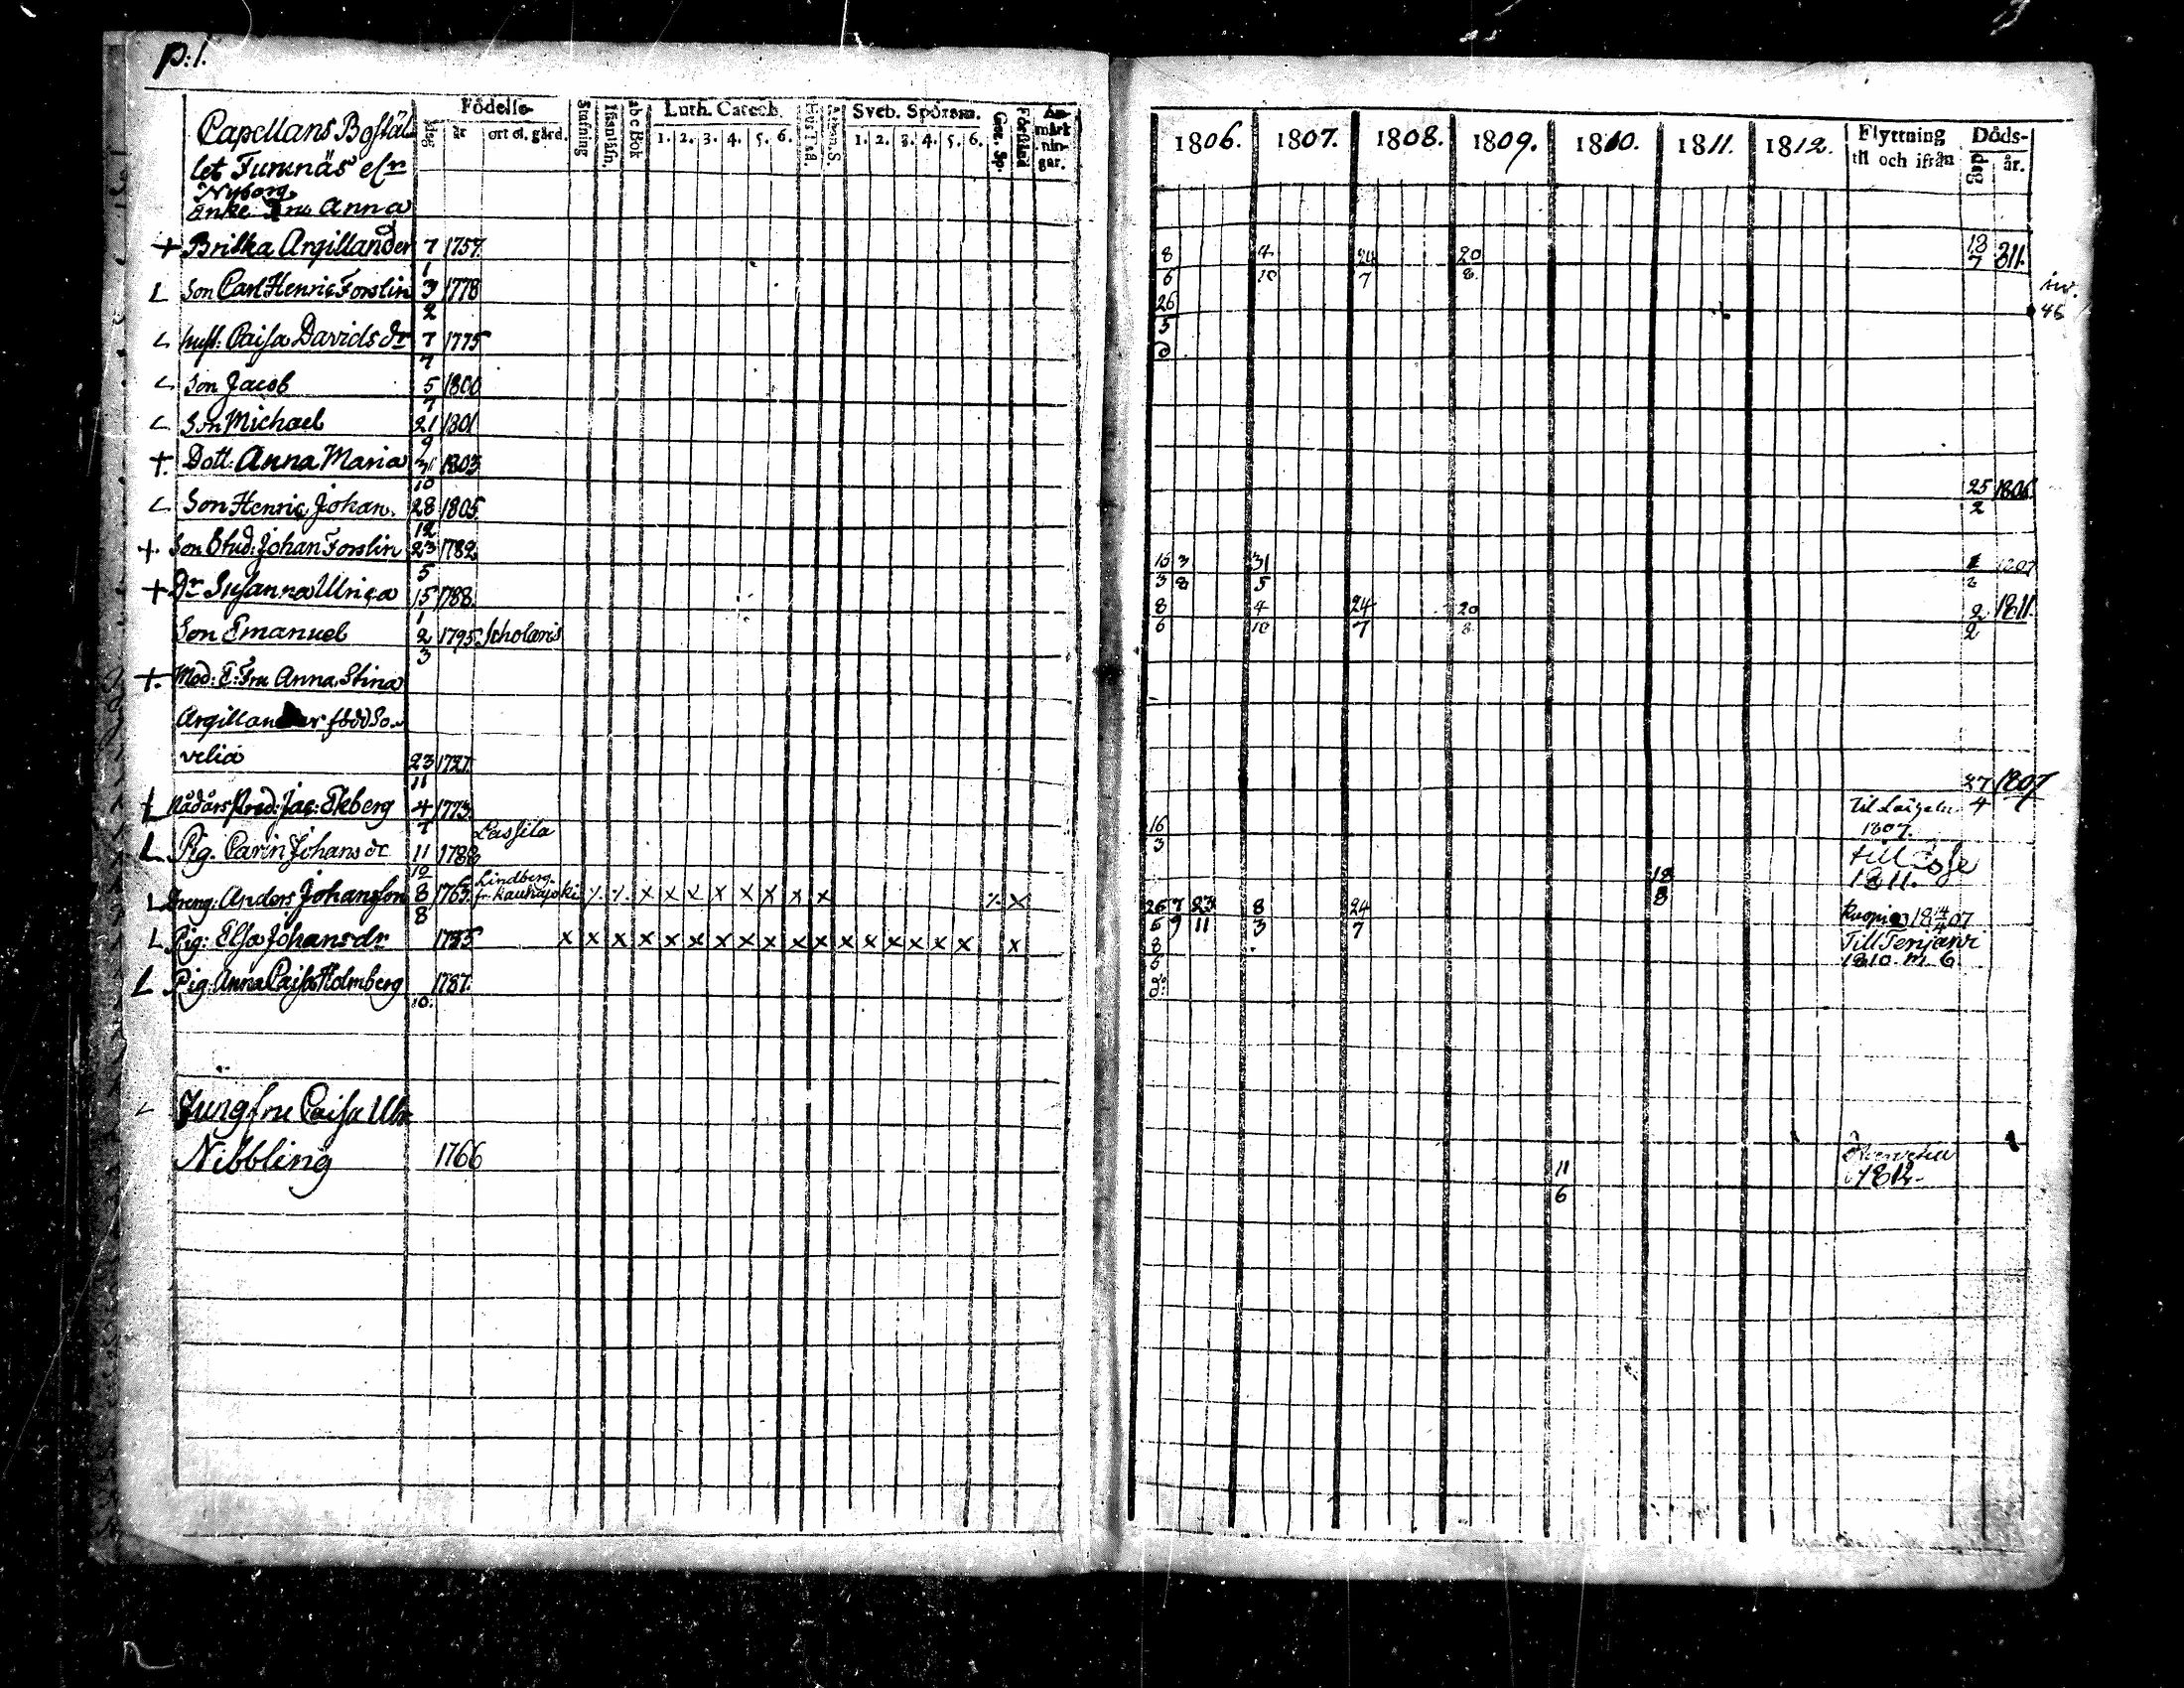 p: 1.
Capellans Bostäl
let Turunäs elr
Nyborg.
Födelse-
dag år ort ol. gård.
Stafning
Abc Bok
Luth. Catech.
1. 2. 3. 4. 5. 6.
Sveb. Spörsm.
1. 2. 3. 4. 5. 6.
An-
märk
nin-
gar.
1806. 1807. 1808. 1809. 1810. 1811. 1812.
Flyttning
til och ifrån
Döds-
dag år.
Enke Fru Anna
+ Britha Argillander 7 1757. 8 4 24 20 18 811.
1 6 10 7 8 7
L Son Carl Henric Forslin 3 1778 26
2 5
L hust: Caisa Davids dr 7 1775
7
L Son Jacob 5 1800
7
L Son Michael 21 1801
9
+ Dott: Anna Maria 31 1803 25 1806.
10 2
L Son Henric Johan. 28 1805
12
+ Son Stud: Johan Forslin 23 1782 15 3 31 1 1807
5 3 8 5
+ Dr Susanna Ulrica 15 1788. 8 4 24 20 2 1811.
1 6 10 7 8 2
Son Emanuel 2 1795 Scholaris
3
+ Mod: E: Fru Anna Stina
Argillander född So-
velia 23 1727. 27 1807
11 4
L Nådårs Pred: Jac: Ekberg 4 1773. 16 Til
7 3 1807.
Lassila
L Pig. Carin Johans dr 11 1788 18 till
12 8 1811.
Lindberg
L Dreng: Anders Johansson 8 1763. fr Kauhajoki ٪ ٪ x x x x x x x x ٪ x 26 7 23 8 24 Kuopio 07
8 5 9 11 3 7
L Pig: Elsa Johansdr 1755 x x x x x x x x x x x x x x x x x 8 Till Terijarvi
5 1810 m. 6
L Pig: Anna Caisa Holmberg 1787.
10.
L Jungfru Caisa Ulr
Nibbling 1766 11 1812.
6